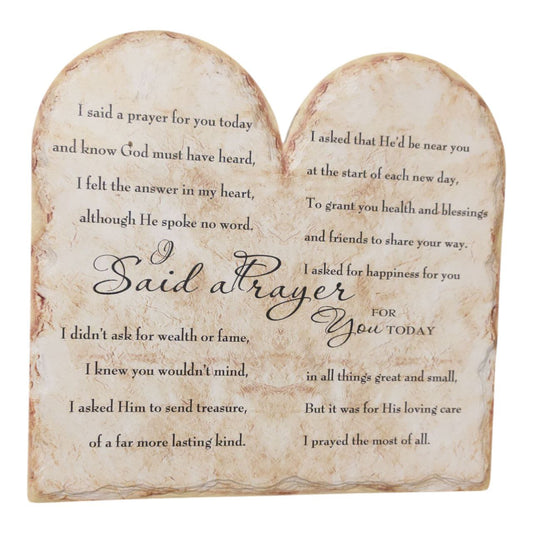 I said a prayer for you today
and know God must have heard,
I felt the answer in my heart,
although He spoke no word.
I
Said a Prayer
FOR
You TODAY
I didn't ask for wealth or fame,
I knew you wouldn't mind,
I asked Him to send treasure,
of a far more lasting kind.
I asked that He'd be near you
at the start of each new day,
To grant you health and blessings
and friends to share your way.
I asked for happiness for you
in all things great and small,
But it was for His loving care
I prayed the most of all.